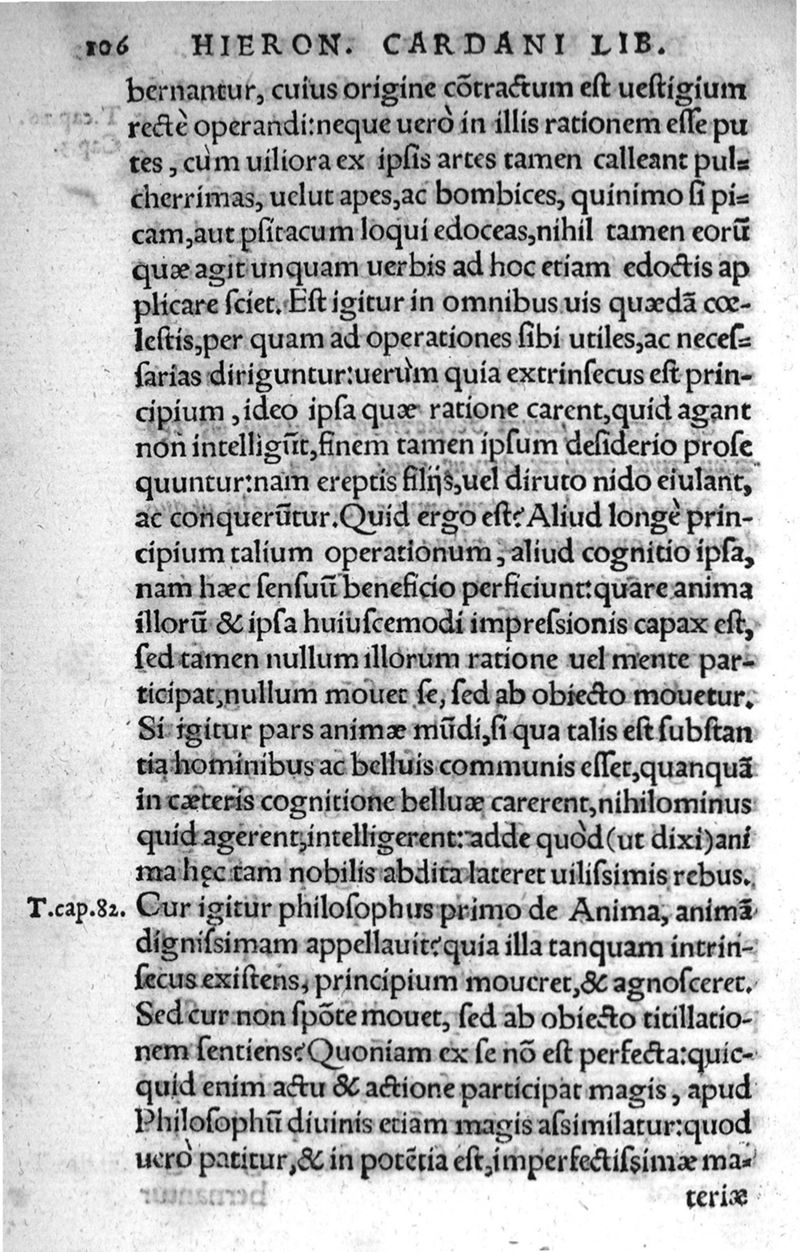 106 HIERON. CARDANI LIB.
bernantur, cuius origine cõtractum est uestigium
rectè operandi:neque uerò in illis rationem esse pu
tes, cùm uiliora ex ipsis artes tamen calleant pul=
cherrimas, uelut apes, ac bombices, quinimo si pi=
cam, aut psitacum loqui edoceas, nihil tamen eorũ
quæ agit unquam uerbis ad hoc etiam edoctis ap
plicare sciet. Est igitur in omnibus uis quædã cœ-
lestis, per quam ad operationes sibi utiles, ac neces=
sarias diriguntur:uerùm quia extrinsecus est prin-
cipium, ideo ipsa quæ ratione carent, quid agant
non intelligũt, finem tamen ipsum desiderio prose
quuntur:nam ereptis filijs, uel diruto nido eiulant,
ac conquerũtur. Quid ergo est? Aliud longè prin-
cipium talium operationum, aliud cognitio ipsa,
nam hæc sensuũ beneficio perficiunt:quare anima
illorũ & ipsa huiuscemodi impressionis capax est,
sed tamen nullum illorum ratione uel mente par-
ticipat, nullum mouet se, sed ab obiecto mouetur.
Si igitur pars animæ mũdi, si qua talis est substan
tia hominibus ac belluis communis esset, quanquã
in cæteris cognitione belluæ carerent, nihilominus
quid agerent, intelligerent: adde quòd (ut dixi) ani
ma hęc tam nobilis abdita lateret uilissimis rebus.
T.cap.82. Cur igitur philosophus primo de Anima, animã
dignissimam appellauit? quia illa tanquam intrin-
secus existens, principium moueret, & agnosceret.
Sed cur non spõte mouet, sed ab obiecto titillatio-
nem sentiens? Quoniam ex se nõ est perfecta: quic-
quid enim actu & actione participat magis, apud
Philosophũ diuinis etiam magis assimilatur: quod
uerò patitur, & in potẽtia est, imperfectissimæ ma-
teriæ